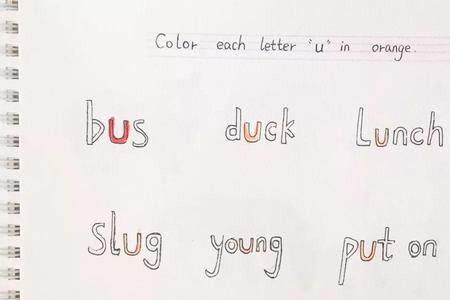 Color each letter "u" in orange.
bus duck Lunch
slug young put on